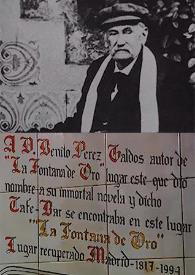 A D. Benito Perez Galdos autor de
"La Fontana de Oro" lugar este que dio
nombre a su inmortal novela y dicho
Cafe-Bar se encontraba en este lugar
"La Fontana de Oro"
Lugar recuperado Madrid-1817-1994